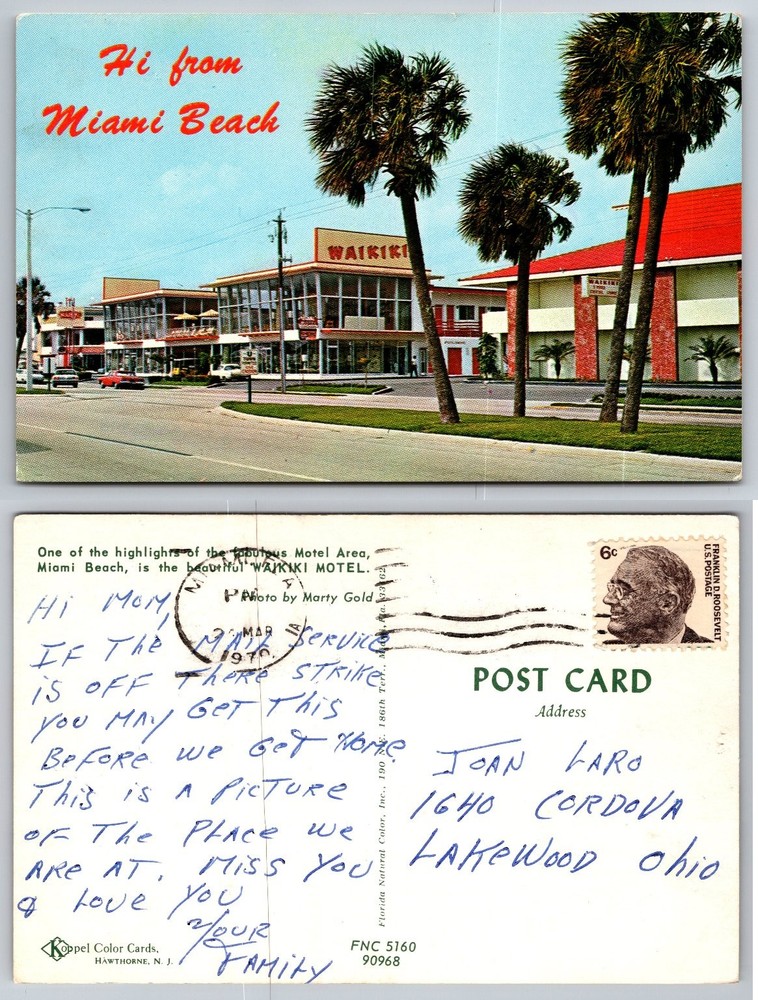 Hi from
Miami Beach
WAIKIKI
WAIKIKI
One of the highlights of the fabulous Motel Area,
Miami Beach, is the beautiful WAIKIKI MOTEL.
Photo by Marty Gold
Hi MOM,
IF THE MAIL SERVICE
is OFF THERE STRIKE
YOU MAY GET THIS
BEFORE WE GET HOME
THIS is A PICTURE
OF THE PLACE WE
ARE AT. MISS YOU
& LOVE YOU
YOUR
FAMILY
Koppel Color Cards,
HAWTHORNE, N. J.
PM
MAR
1970
Florida Natural Color, Inc., 190 N.E. 186th Terr., Miami, Fla. 33162
6c
FRANKLIN D. ROOSEVELT
U.S. POSTAGE
POST CARD
Address
JOAN LARO
1640 CORDOVA
LAKEWOOD Ohio
FNC 5160
90968